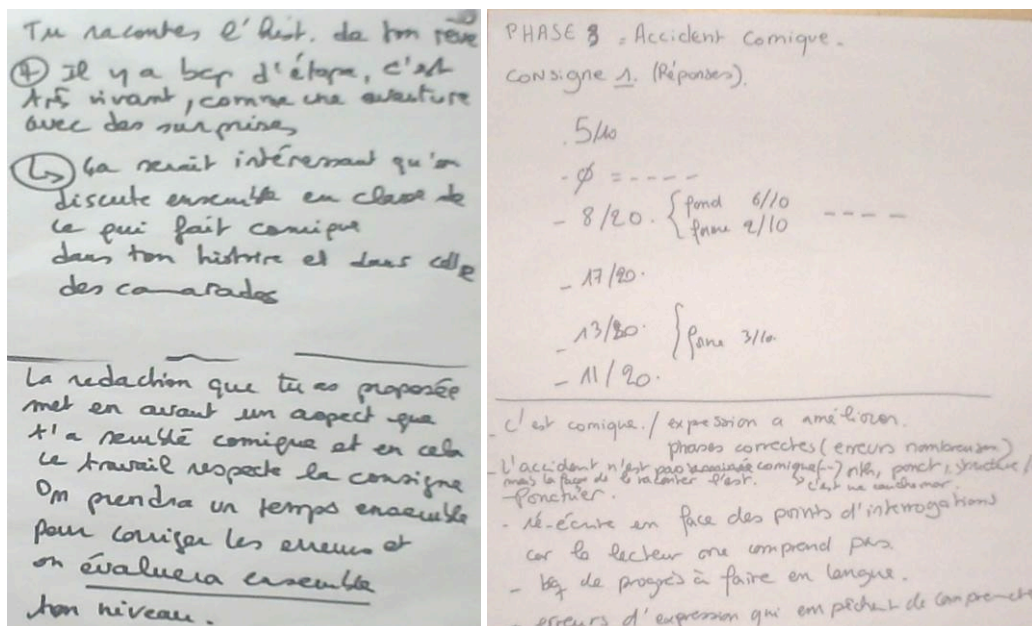 Tu racontes l'hist. de ton rêve
+ Il y a bcp d'étape, c'est
trs vivant, comme une aventure
avec des surprises
↳ ça serait intéressant qu'on
discute ensemble en classe de
ce qui fait comique
dans ton histoire et dans celle
des camarades
La redaction que tu as proposée
met en avant un aspect que
t'a semblé comique et en cela
ce travail respecte la consigne
On prendra un temps ensemble
pour corriger les erreurs et
on évaluera ensemble
ton niveau.
PHASE 3 : Accident Comique.
CONSIGNE 1. (Réponses).
. 5/10
- Ø = - - - -
- 8/20. { fond 6/10
forme 2/10 - - - -
- 17/20.
- 13/20. { forme 3/10
- 11/20.
- C'est comique. / expression a améliorer.
phases correctes (erreurs nombreuses)
- L'accident n'est pas comique (-) ponct, structure /
mais la façon de le raconter l'est. c'est un cauchemar.
- Ponctuer.
- ré-écrite en face des points d'interrogations
car le lecteur ne comprend pas.
- bcp de progrès à faire en langue.
- erreurs d'expression qui empêchent de comprendre